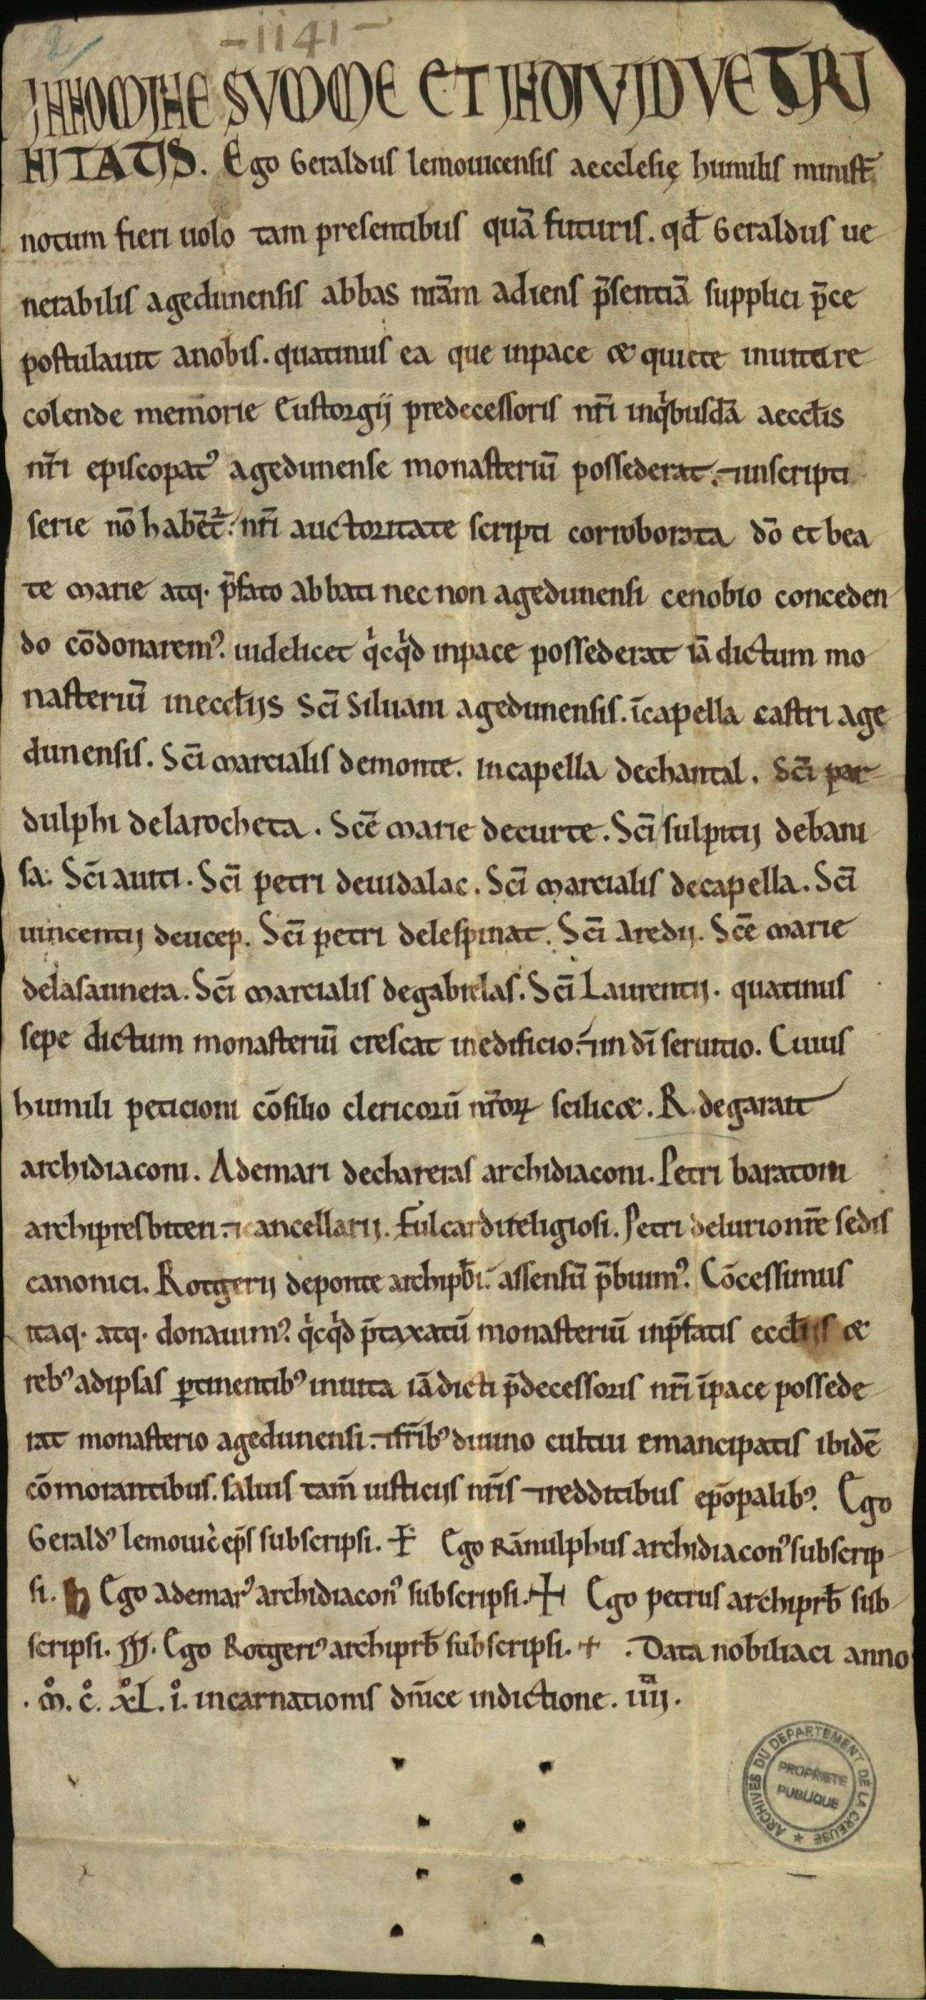 -1141-
IN NOMINE SUMME ET INDIVIDUE TRI
NITATIS. Ego Geraldus lemouicensis aecclesię humilis minist̄
notum fieri uolo tam presentibus quā futuris. qd̄ Geraldus ue
nerabilis agedunensis abbas nr̄am adiens p̄sentiā supplici p̄ce
postulauit anobis. quatinus ea que inpace & quiete inuita re
colende memorie Eustorgij predecessoris nr̄i inqͥbusdā aeccl̄is
nr̄i episcopatꝰ agedunense monasteriū possederat. ⁊ inscripti
serie nō habēt᷑. nr̄i auctoritate scripti corroborata dō et bea
te marie atq· p̄fato abbati nec non agedunensi cenobio conceden
do cōdonaremꝰ. uidelicet qͥcqͥd inpace possederat iā dictum mo
nasteriū ineccl̄ijs Sc̄i Siluani agedunensis. īcapella castri age
dunensis. Sc̄i marcialis demonte. incapella dechantal. Sc̄i par
dulphi delarocheta. Sc̄e marie decurte. Sc̄i sulpitij debani
sa. Sc̄i auiti. Sc̄i petri deuidalac. Sc̄i marcialis decapella. Sc̄i
uincentij deucep. Sc̄i petri delespinat. Sc̄i Aredij. Sc̄e marie
delasaunera. Sc̄i marcialis degabrelas. Sc̄i Laurentij. quatinus
sepe dictum monasteriū crescat inedificio. ⁊ in dī seruitio. Cuius
humili peticioni cōsilio clericorū nr̄oꝝ scilic&. R. degarait
archidiaconi. Ademari dechareras archidiaconi. Petri baratoni
archipresbiteri. ⁊ cancellarij. Fulcardi religiosi. Petri delurio nr̄e sedis
canonici. Rotgerij deponte archipb̄i. assensū p̄buimꝰ. Cōcessimus
itaq· atq· donauimꝰ qͥcqͥd p̄taxatū monasteriū inp̄fatis eccl̄ijs &
rebꝰ adipsas ꝑtinentibꝰ inuita iā dicti p̄decessoris nr̄i īpace possede
rat monasterio agedunensi. ⁊ fr̄ibꝰ diuino cultui emancipatis ibidē
cōmorantibus. saluis tam̄ iusticijs nr̄is ⁊ redditibus ep̄opalibꝰ. Ego
Geraldꝰ lemouic̄ ep̄s subscripsi. + Ego Rānulphus archidiaconꝰ subscrip
si. Ego Ademarꝰ archidiaconꝰ subscripsi. + Ego petrus archiprb̄ sub
scripsi. Ego Rotgeriꝰ archiprb̄ subscripsi. + . Data nobiliaci anno
. m̊. c̊. xl̊. i̊. incarnationis dn̄ice indictione. iiiiͣ.
ARCHIVES DU DEPARTEMENT DE LA CREUSE
PROPRIETE
PUBLIQUE